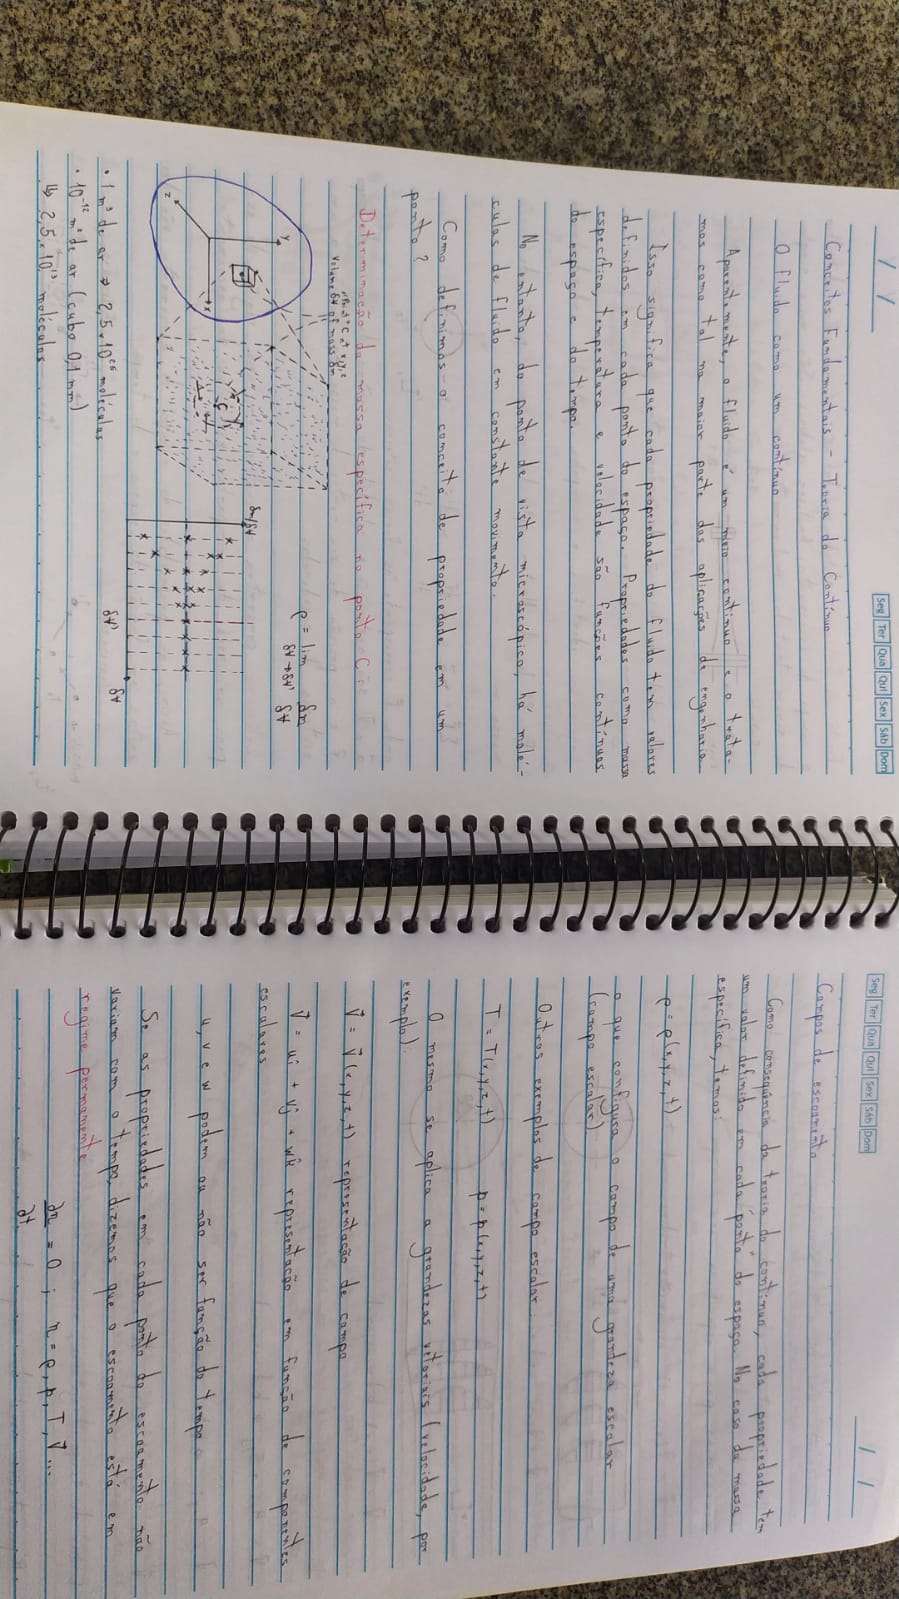 Seg Ter Qua Qui Sex Sáb Dom
Conceitos Fundamentais - Teoria do Contínuo
O fluido como um contínuo
Aparentemente, o fluido é um meio contínuo e o trata-
mos como tal na maior parte das aplicações de engenharia.
Isso significa que cada propriedade do fluido tem valores
definidos em cada ponto do espaço. Propriedades como massa
específica, temperatura e velocidade são funções contínuas
do espaço e do tempo.
No entanto, do ponto de vista microscópico, há molé-
culas de fluido em constante movimento.
Como definimos o conceito de propriedade em um
ponto?
Determinação da massa específica no ponto C:
"Point" C at x,y,z
Volume δV of mass δm
y
x
z
C
δm/δV
δV'
δV
ρ = lim δm
δV→δV' δV
• 1 m³ de ar → 2,5 x 10²⁵ moléculas
• 10⁻¹² m³ de ar (cubo 0,1 mm)
↳ 2,5 x 10¹³ moléculas
Seg Ter Qua Qui Sex Sáb Dom
Campos de escoamento
Como consequência da teoria do contínuo, cada propriedade tem
um valor definido em cada "ponto" do espaço. No caso da massa
específica, temos:
ρ = ρ(x,y,z,t)
o que configura o campo de uma grandeza escalar
(campo escalar)
Outros exemplos de campo escalar:
T = T(x,y,z,t) p = p(x,y,z,t)
O mesmo se aplica a grandezas vetoriais (velocidade, por
exemplo).
V⃗ = V⃗(x,y,z,t) representação de campo
V⃗ = uî + vĵ + wk̂ representação em função de componentes
escalares
u, v e w podem ou não ser função do tempo
Se as propriedades em cada ponto do escoamento não
variam com o tempo, dizemos que o escoamento está em
regime permanente
∂η = 0 ; η = ρ, p, T, V⃗ ...
∂t